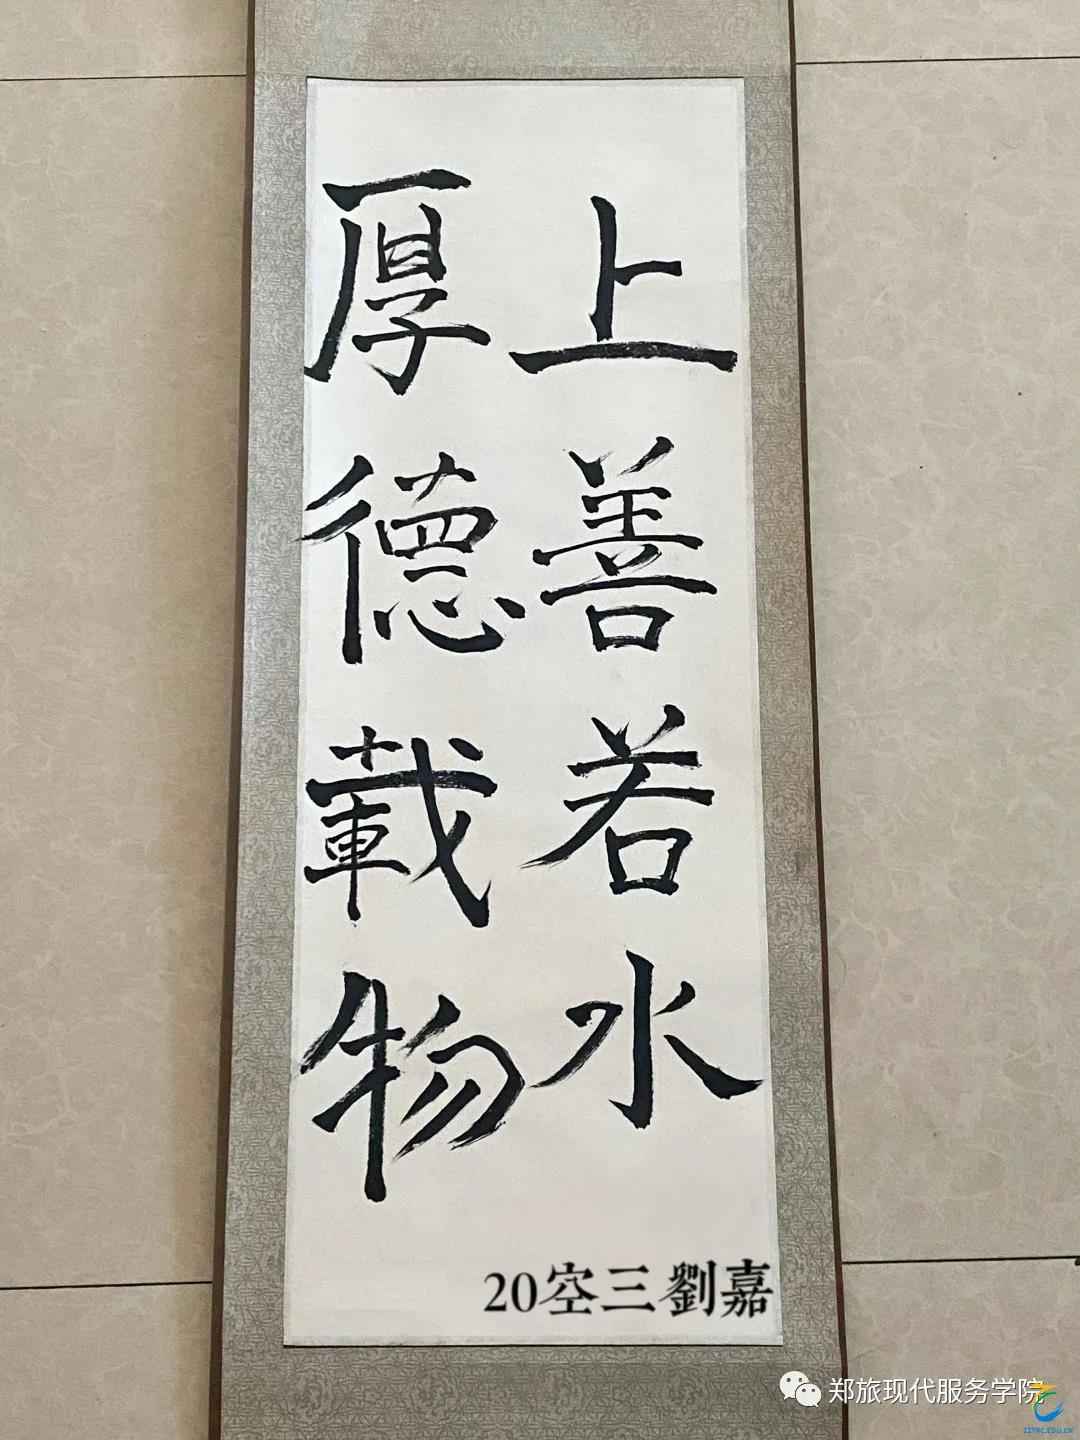 上善若水
厚德載物
20空三劉嘉
郑旅现代服务学院
ZZTRC.EDU.CN